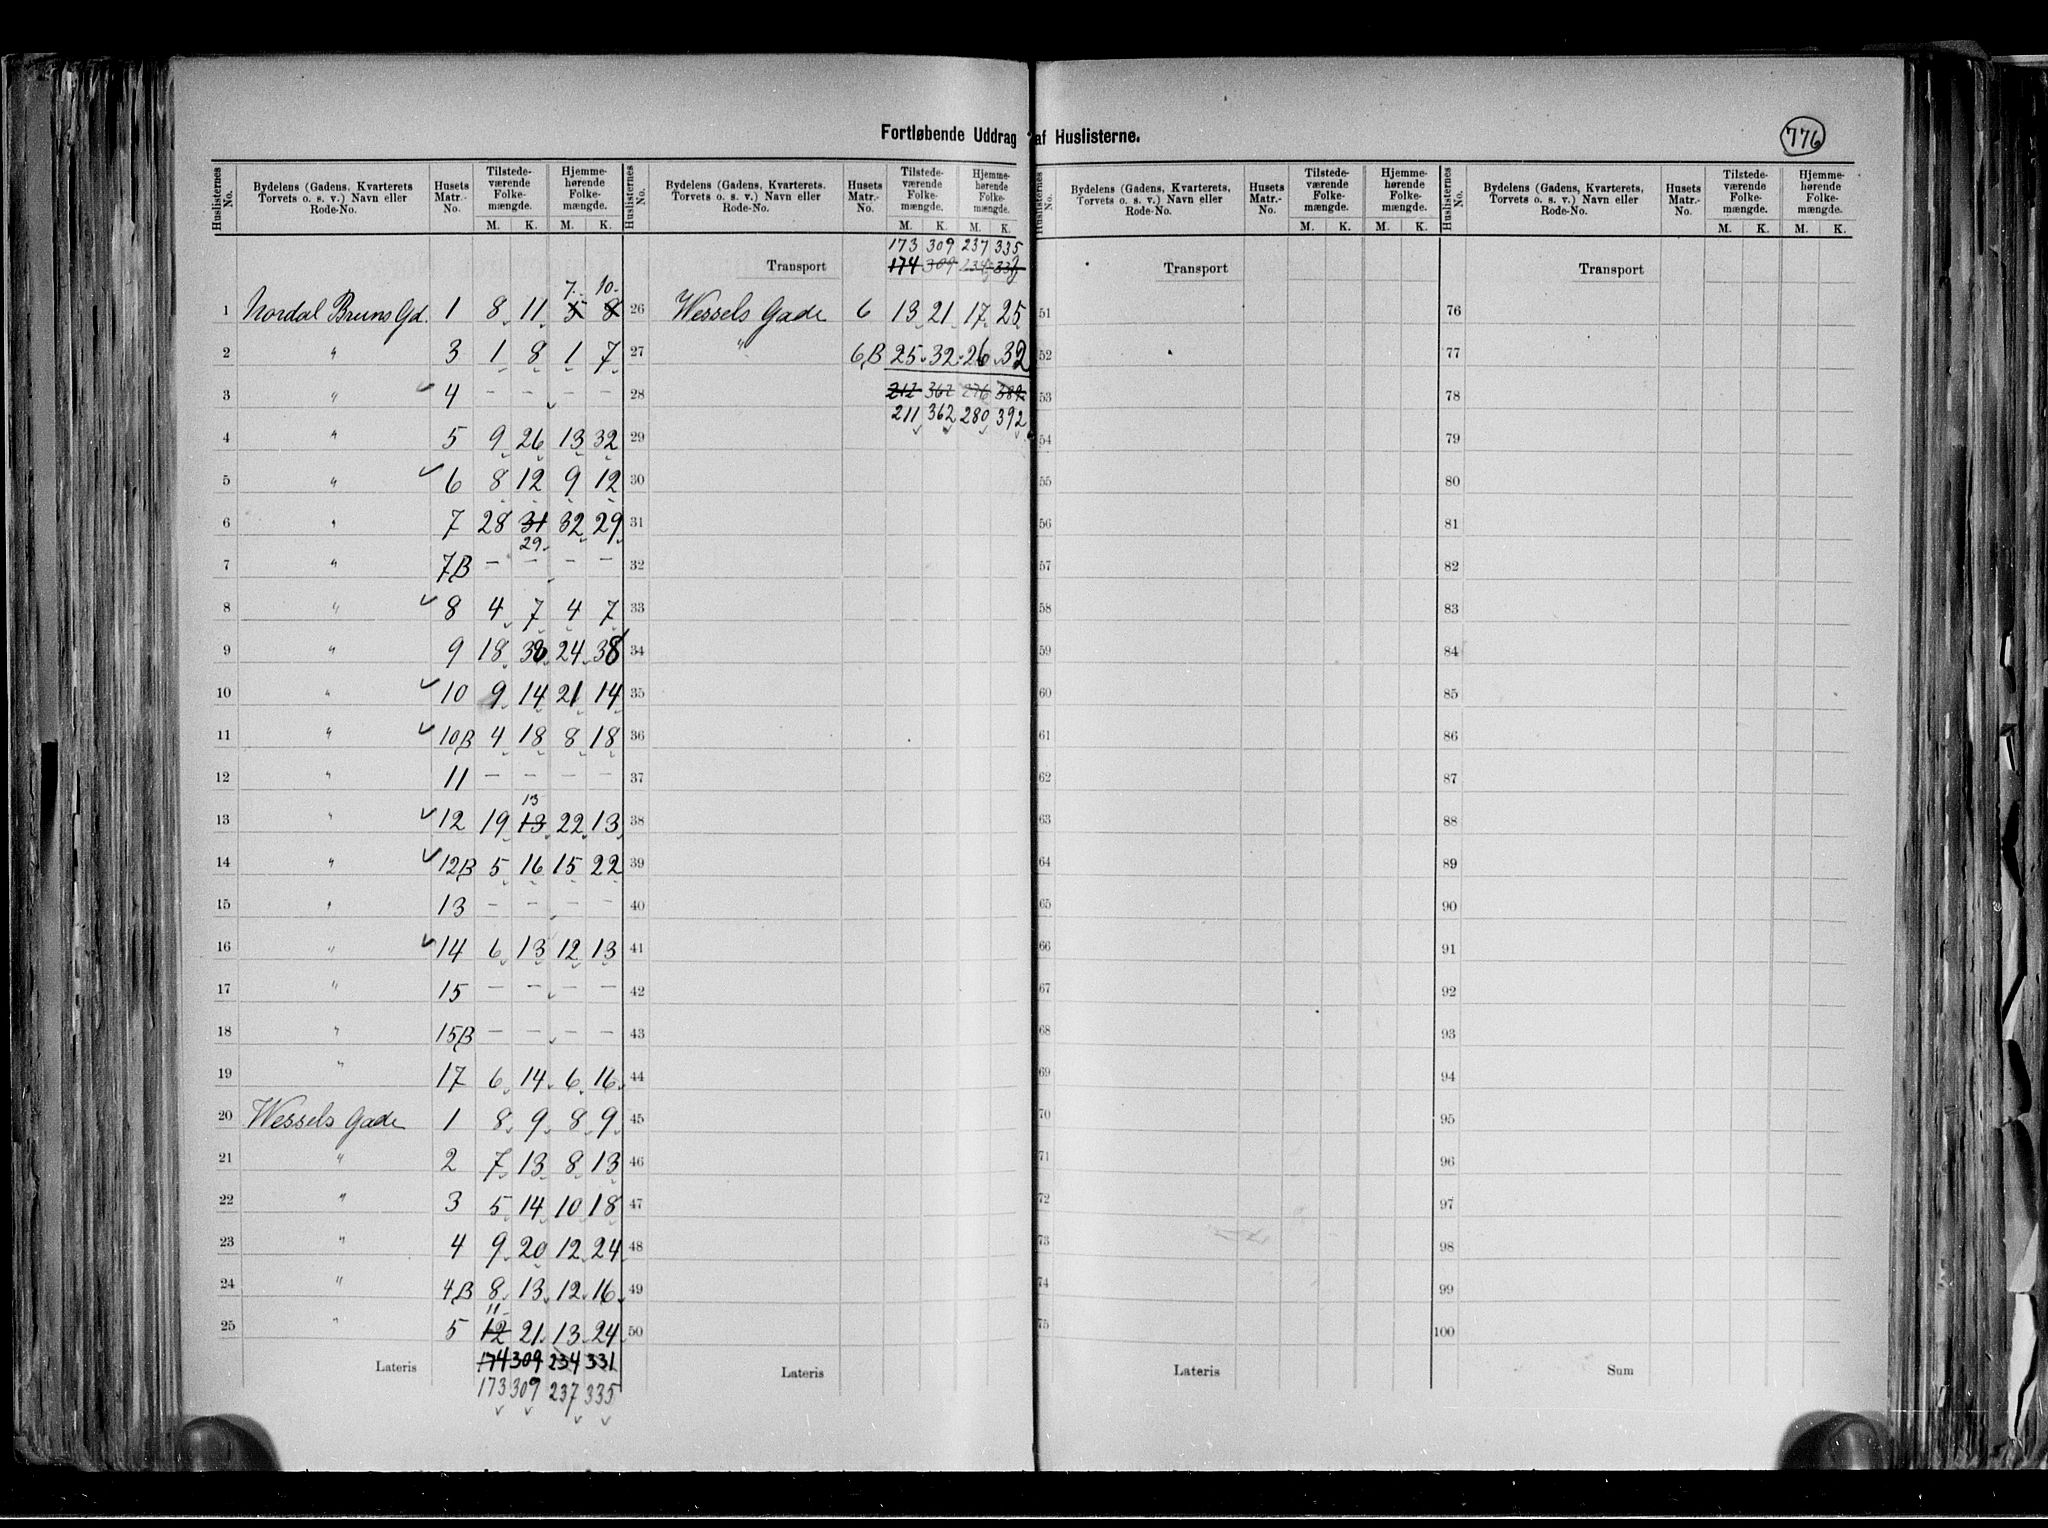 Fortløbende Uddrag af Huslisterne.
776
Huslisternes No. | Bydelens (Gadens, Kvarterets Torvets o. s. v.) Navn eller Rode-No. | Husets Matr.-No. | Tilstedeværende Folkemængde. M. K. | Hjemmehørende Folkemængde. M. K.
1 Nordal Bruns Gd. 1 8 11 5 8 7 10
2 " 3 1 8 1 7
3 " 4 – – – –
4 " 5 9 26 13 32
5 " 6 8 12 9 12
6 " 7 28 31 32 29
29
7 " 7B – – – –
8 " 8 4 7 4 7
9 " 9 18 38 24 38
10 " 10 9 14 21 14
11 " 10B 4 18 8 18
12 " 11 – – – –
13
13 " 12 19 13 22 13
14 " 12B 5 16 15 22
15 " 13 – – – –
16 " 14 6 13 12 13
17 " 15 – – – –
18 " 15B – – – –
19 " 17 6 14 6 16
20 Wessels Gade 1 8 9 8 9
21 " 2 7 13 8 13
22 " 3 5 14 10 18
23 " 4 9 20 12 24
24 " 4B 8 13 12 16
11
25 " 5 12 21 13 24
Lateris 174 309 234 331
173 309 237 335
Huslisternes No. | Bydelens (Gadens, Kvarterets. Torvets o. s. v.) Navn eller Rode-No. | Husets Matr.-No. | Tilstedeværende Folkemængde. M. K. | Hjemmehørende Folkemængde. M. K.
173 309 237 335
Transport 174 309 234
26 Wessels Gade 6 13 21 17 25
27 " 6B 25 32 26 32
28 212 362 276
211 362 280 392
29
30
31
32
33
34
35
36
37
38
39
40
41
42
43
44
45
46
47
48
49
50
Lateris
Huslisternes No. | Bydelens (Gadens, Kvarterets, Torvets o. s. v.) Navn eller Rode-No. | Husets Matr.-No. | Tilstedeværende Folkemængde. M. K. | Hjemmehørende Folkemængde. M. K.
Transport
51
52
53
54
55
56
57
58
59
60
61
62
63
64
65
66
67
68
69
70
71
72
73
74
75
Lateris
Huslisternes No. | Bydelens (Gadens, Kvarterets, Torvets o. s. v.) Navn eller Rode-No. | Husets Matr.-No. | Tilstedeværende Folkemængde. M. K. | Hjemmehørende Folkemængde. M. K.
Transport
76
77
78
79
80
81
82
83
84
85
86
87
88
89
90
91
92
93
94
95
96
97
98
99
100
Sum